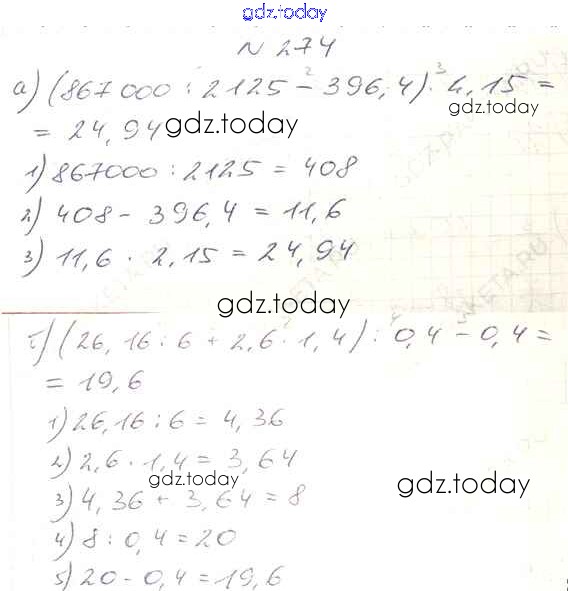 gdz.today
N 274
а) (867000 : 2125 - 396,4) · 2,15 =
gdz.today
= 24,94 gdz.today
1) 867000 : 2125 = 408
2) 408 - 396,4 = 11,6
3) 11,6 · 2,15 = 24,94
gdz.today
б) (26,16 : 6 + 2,6 · 1,4) : 0,4 - 0,4 =
= 19,6
1) 26,16 : 6 = 4,36
2) 2,6 · 1,4 = 3,64
gdz.today
gdz.today
3) 4,36 + 3,64 = 8
4) 8 : 0,4 = 20
5) 20 - 0,4 = 19,6